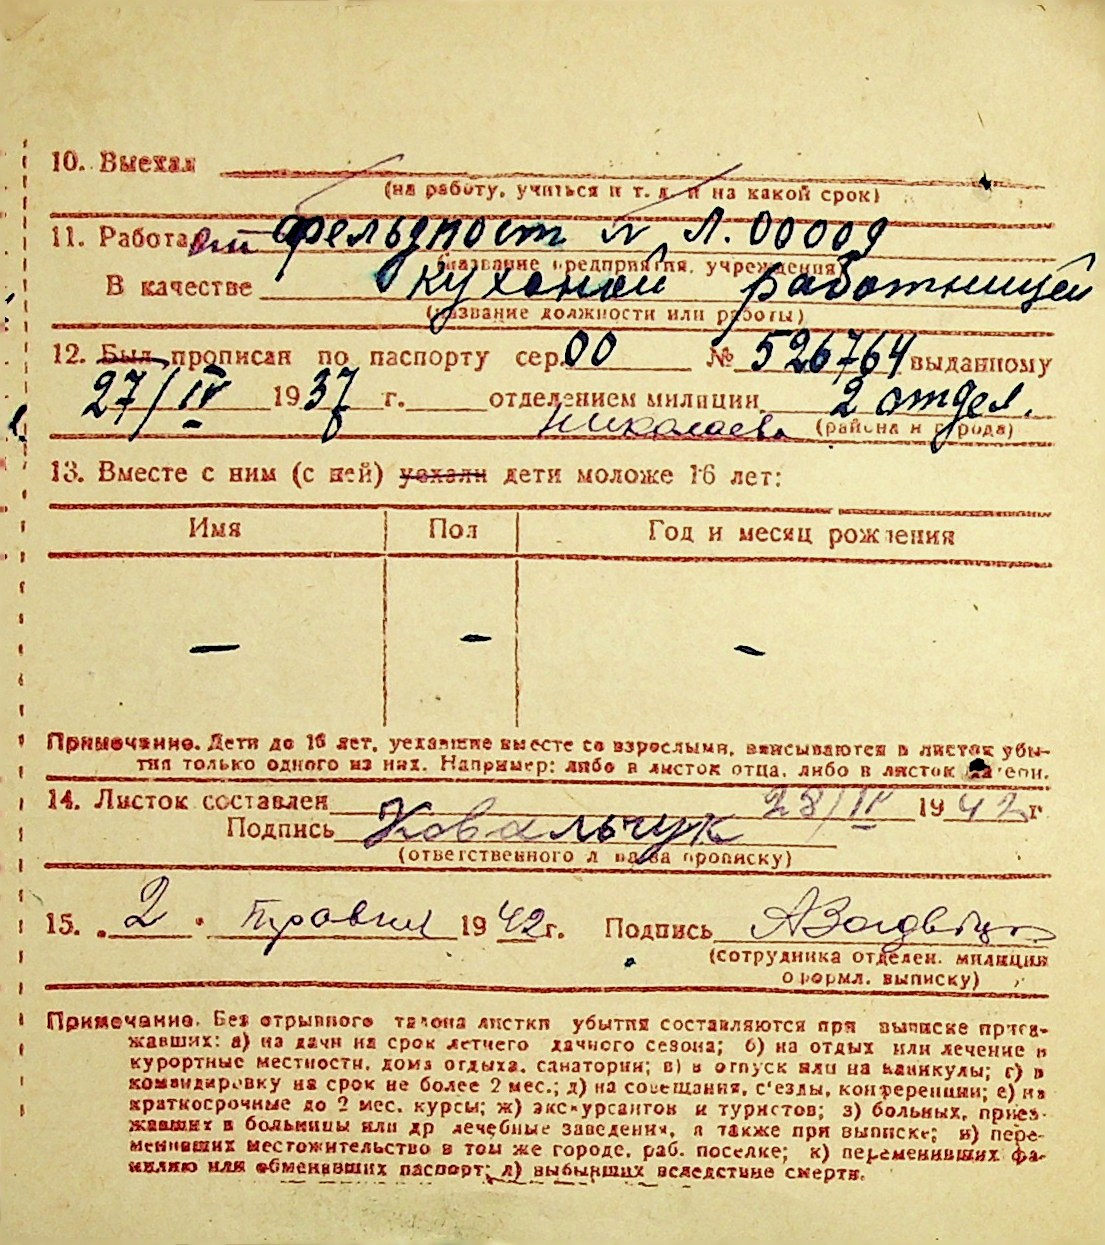 10. Выехал
(на работу, учиться и т. д. и на какой срок)
11. Работа фельдпост № Л. 00009
(название предприятия, учреждения)
В качестве кухоной работницей
(название должности или работы)
12. Был прописан по паспорту сер. 00 № 526764 выданному
27/IV 1937 г. отделением милиции 2 отдел.
Николаева (района и города)
13. Вместе с ним (с ней) уехали дети моложе 16 лет:
Имя Пол Год и месяц рождения
— — —
Примечание. Дети до 16 лет, уехавшие вместе со взрослыми, вписываются в листок убы-
тия только одного из них. Например: либо в листок отца, либо в листок матери.
14. Листок составлен 28/IV 1942 г
Подпись Ковальчук
(ответственного лица за прописку)
15. „2 " Травня 1942 г. Подпись
(сотрудника отделен. милиции
оформл. выписку)
Примечание. Без отрывного талона листки убытия составляются при выписке приез-
жавших: а) на дачи на срок летнего дачного сезона; б) на отдых или лечение в
курортные местности, дома отдыха, санатории; в) в отпуск или на каникулы; г) в
командировку на срок не более 2 мес.; д) на совещания, с'езды, конференции; е) на
краткосрочные до 2 мес. курсы; ж) экскурсантов и туристов; з) больных, приез-
жавших в больницы или др лечебные заведения, а также при выписке; и) пере-
менивших местожительство в том же городе, раб. поселке; к) переменивших фа-
милию или обменявших паспорт; л) выбывших вследствие смерти.